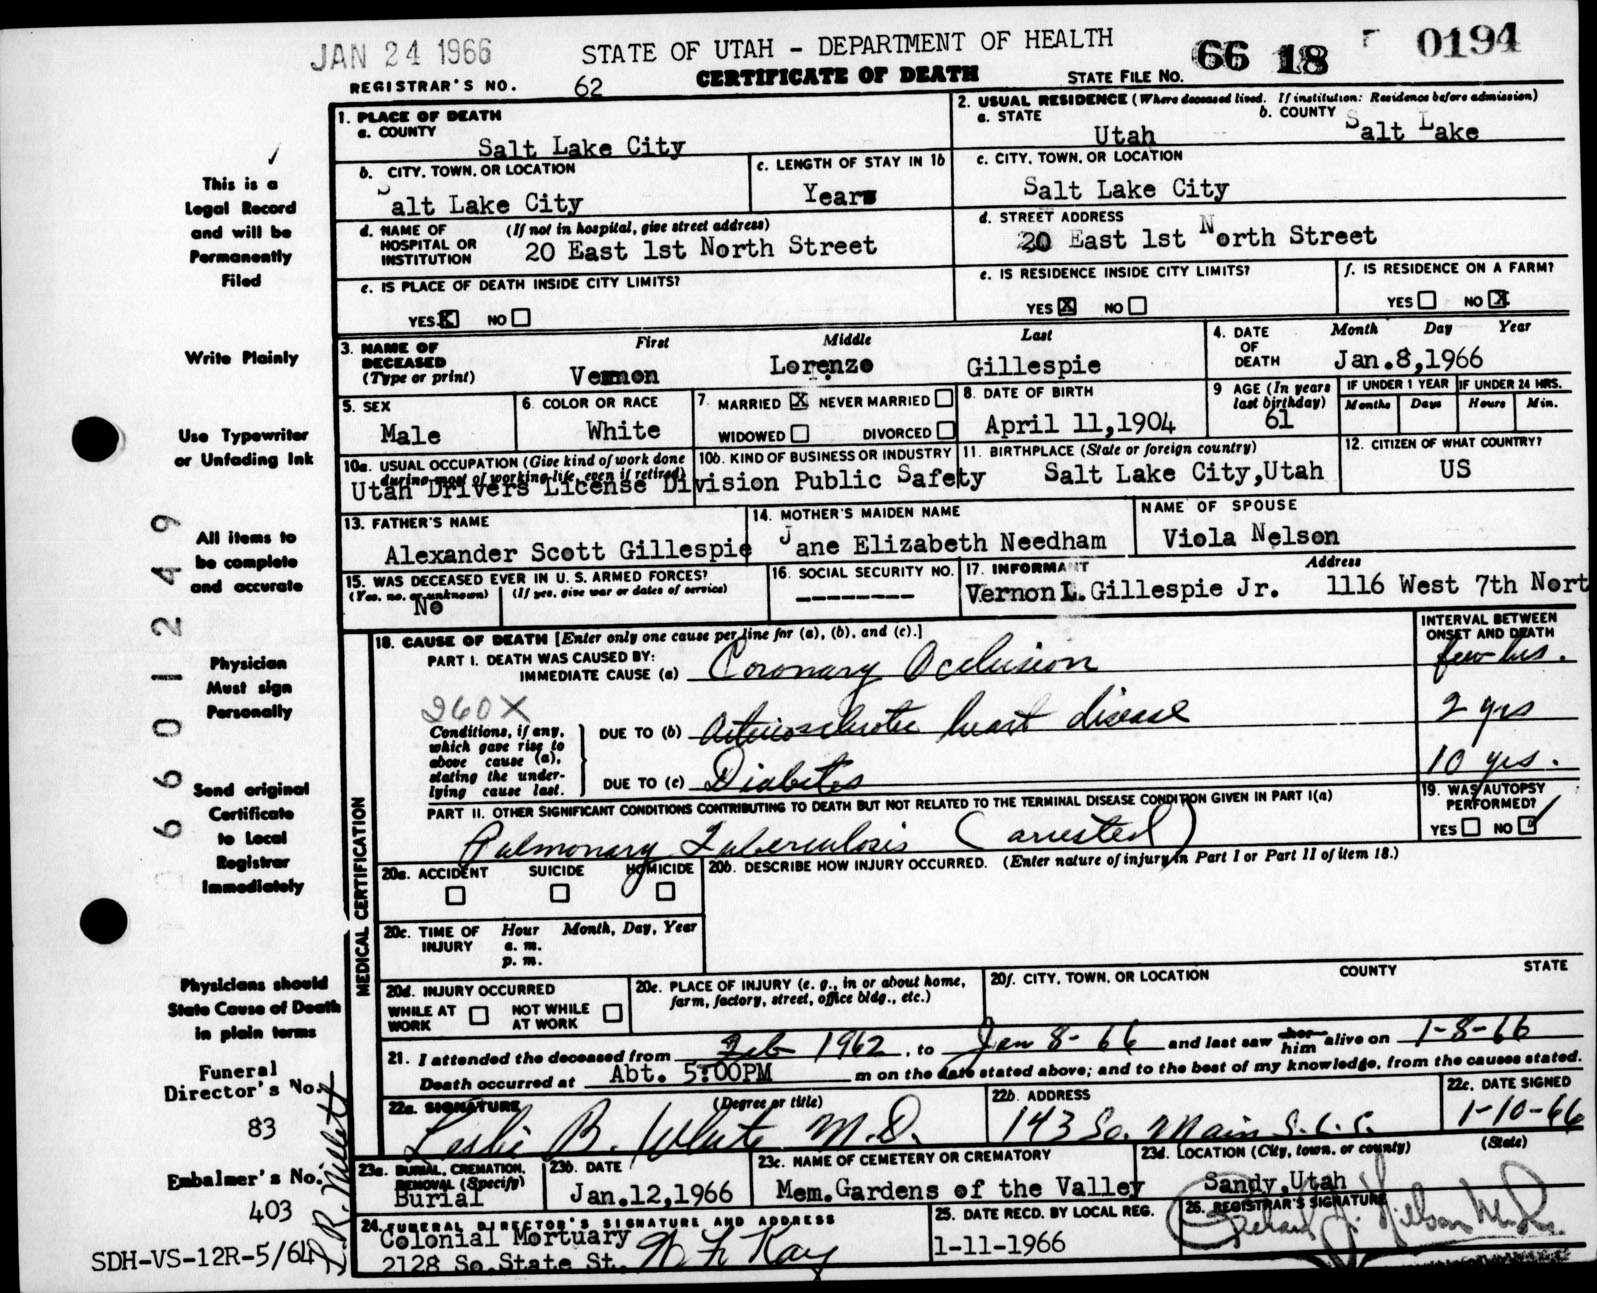 JAN 24 1966
STATE OF UTAH - DEPARTMENT OF HEALTH
66 18 0194
REGISTRAR'S NO. 62
CERTIFICATE OF DEATH
STATE FILE NO.
1. PLACE OF DEATH
a. COUNTY
Salt Lake City
2. USUAL RESIDENCE (Where deceased lived. If institution: Residence before admission)
a. STATE
Utah
b. COUNTY
Salt Lake
b. CITY, TOWN, OR LOCATION
Salt Lake City
c. LENGTH OF STAY IN 1b
Years
c. CITY, TOWN, OR LOCATION
Salt Lake City
d. NAME OF HOSPITAL OR INSTITUTION
(If not in hospital, give street address)
20 East 1st North Street
d. STREET ADDRESS
20 East 1st North Street
e. IS PLACE OF DEATH INSIDE CITY LIMITS?
YES X NO
e. IS RESIDENCE INSIDE CITY LIMITS?
YES X NO
f. IS RESIDENCE ON A FARM?
YES NO X
3. NAME OF DECEASED
(Type or print)
First Middle Last
Vernon Lorenzo Gillespie
4. DATE OF DEATH
Month Day Year
Jan.8,1966
5. SEX
Male
6. COLOR OR RACE
White
7. MARRIED X NEVER MARRIED
WIDOWED DIVORCED
8. DATE OF BIRTH
April 11,1904
9 AGE (In years last birthday)
61
IF UNDER 1 YEAR
Months Days
IF UNDER 24 HRS.
Hours Min.
10a. USUAL OCCUPATION (Give kind of work done during most of working life, even if retired)
10b. KIND OF BUSINESS OR INDUSTRY
Utah Drivers License Division Public Safety
11. BIRTHPLACE (State or foreign country)
Salt Lake City,Utah
12. CITIZEN OF WHAT COUNTRY?
US
13. FATHER'S NAME
Alexander Scott Gillespie
14. MOTHER'S MAIDEN NAME
Jane Elizabeth Needham
NAME OF SPOUSE
Viola Nelson
15. WAS DECEASED EVER IN U. S. ARMED FORCES?
(Yes, no, or unknown)
(If yes, give war or dates of service)
No
16. SOCIAL SECURITY NO.
--------
17. INFORMANT Address
Vernon L. Gillespie Jr. 1116 West 7th Nort
MEDICAL CERTIFICATION
18. CAUSE OF DEATH [Enter only one cause per line for (a), (b), and (c).]
INTERVAL BETWEEN ONSET AND DEATH
PART I. DEATH WAS CAUSED BY:
IMMEDIATE CAUSE (a) Coronary Occlusion few hrs.
260X
Conditions, if any, which gave rise to above cause (a), stating the under-lying cause last.
DUE TO (b) Arteriosclerotic heart disease 2 yrs
DUE TO (c) Diabetes 10 yrs.
PART II. OTHER SIGNIFICANT CONDITIONS CONTRIBUTING TO DEATH BUT NOT RELATED TO THE TERMINAL DISEASE CONDITION GIVEN IN PART I(a)
Pulmonary Tuberculosis (arrested)
19. WAS AUTOPSY PERFORMED?
YES NO
20a. ACCIDENT SUICIDE HOMICIDE
20b. DESCRIBE HOW INJURY OCCURRED. (Enter nature of injury in Part I or Part II of item 18.)
20c. TIME OF INJURY
Hour Month, Day, Year
a. m.
p. m.
20d. INJURY OCCURRED
WHILE AT WORK
NOT WHILE AT WORK
20e. PLACE OF INJURY (e. g., in or about home, farm, factory, street, office bldg., etc.)
20f. CITY, TOWN, OR LOCATION COUNTY STATE
21. I attended the deceased from Feb 1962, to Jan 8-66 and last saw her him alive on 1-8-66
Death occurred at Abt. 5:00PM m on the date stated above; and to the best of my knowledge, from the causes stated.
22a. SIGNATURE (Degree or title)
Leslie B. White M.D.
22b. ADDRESS
143 So. Main S.L.C.
22c. DATE SIGNED
1-10-66
23a. BURIAL, CREMATION, REMOVAL (Specify)
Burial
23b. DATE
Jan.12,1966
23c. NAME OF CEMETERY OR CREMATORY
Mem.Gardens of the Valley
23d. LOCATION (City, town, or county) (State)
Sandy,Utah
24. FUNERAL DIRECTOR'S SIGNATURE AND ADDRESS
Colonial Mortuary
2128 So.State St.
25. DATE RECD. BY LOCAL REG.
1-11-1966
26. REGISTRAR'S SIGNATURE
This is a
Legal Record
and will be
Permanently
Filed
Write Plainly
Use Typewriter
or Unfading Ink
All items to
be complete
and accurate
Physician
Must sign
Personally
Send original
Certificate
to Local
Registrar
Immediately
Physicians should
State Cause of Death
in plain terms
Funeral
Director's No.
83
Embalmer's No.
403
SDH-VS-12R-5/64
6601249